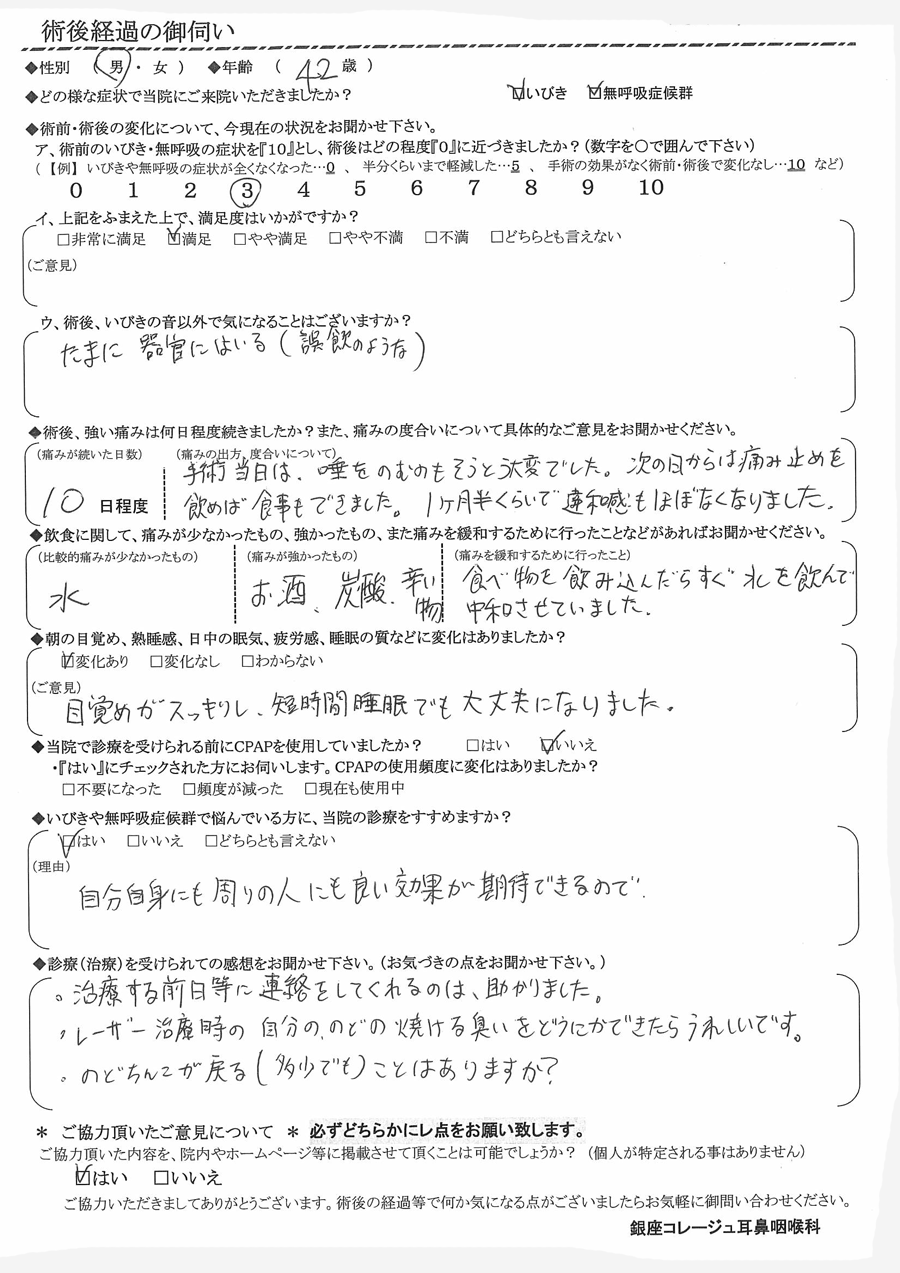 術後経過の御伺い
◆性別 ( 男 ・ 女 ) ◆年齢 ( 42 歳 )
◆どの様な症状で当院にご来院いただきましたか? ☑いびき ☑無呼吸症候群
◆術前・術後の変化について、今現在の状況をお聞かせ下さい。
ア、術前のいびき・無呼吸の症状を『10』とし、術後はどの程度『0』に近づきましたか?(数字を○で囲んで下さい)
(【例】 いびきや無呼吸の症状が全くなくなった…0 、 半分くらいまで軽減した…5 、 手術の効果がなく術前・術後で変化なし…10 など)
0 1 2 3 4 5 6 7 8 9 10
イ、上記をふまえた上で、満足度はいかがですか?
□非常に満足 ☑満足 □やや満足 □やや不満 □不満 □どちらとも言えない
(ご意見)
ウ、術後、いびきの音以外で気になることはございますか?
たまに 器官にはいる(誤飲のような)
◆術後、強い痛みは何日程度続きましたか?また、痛みの度合いについて具体的なご意見をお聞かせください。
(痛みが続いた日数) (痛みの出方、度合いについて)
手術当日は、唾をのむのもそうとう大変でした。次の日からは痛み止めを
10 日程度 飲めば食事もできました。1ヶ月半くらいで違和感もほぼなくなりました。
◆飲食に関して、痛みが少なかったもの、強かったもの、また痛みを緩和するために行ったことなどがあればお聞かせください。
(比較的痛みが少なかったもの) (痛みが強かったもの) (痛みを緩和するために行ったこと)
水 お酒、炭酸、辛い物 食べ物を飲み込んだらすぐ水を飲んで
中和させていました。
◆朝の目覚め、熟睡感、日中の眠気、疲労感、睡眠の質などに変化はありましたか?
☑変化あり □変化なし □わからない
(ご意見)
目覚めがスッキリし、短時間睡眠でも大丈夫になりました。
◆当院で診療を受けられる前にCPAPを使用していましたか? □はい ☑いいえ
・『はい』にチェックされた方にお伺いします。CPAPの使用頻度に変化はありましたか?
□不要になった □頻度が減った □現在も使用中
◆いびきや無呼吸症候群で悩んでいる方に、当院の診療をすすめますか?
☑はい □いいえ □どちらとも言えない
(理由)
自分自身にも周りの人にも良い効果が期待できるので。
◆診療(治療)を受けられての感想をお聞かせ下さい。(お気づきの点をお聞かせ下さい。)
。治療する前日等に連絡をしてくれるのは、助かりました。
・レーザー治療時の自分の、のどの焼ける臭いをどうにかできたらうれしいです。
・のどちんこが戻る(多少でも)ことはありますか?
* ご協力頂いたご意見について * 必ずどちらかにレ点をお願い致します。
ご協力頂いた内容を、院内やホームページ等に掲載させて頂くことは可能でしょうか? (個人が特定される事はありません)
☑はい □いいえ
ご協力いただきましてありがとうございます。術後の経過等で何か気になる点がございましたらお気軽に御問い合わせください。
銀座コレージュ耳鼻咽喉科